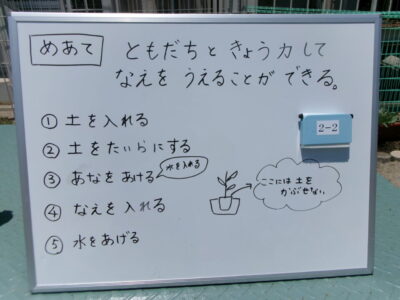 めあて
ともだちと きょう力して
なえを うえることが できる。
① 土を入れる
② 土をたいらにする
③ あなをあける
水を入れる
④ なえを入れる
⑤ 水をあげる
2-2
ここには 土を
かぶせない